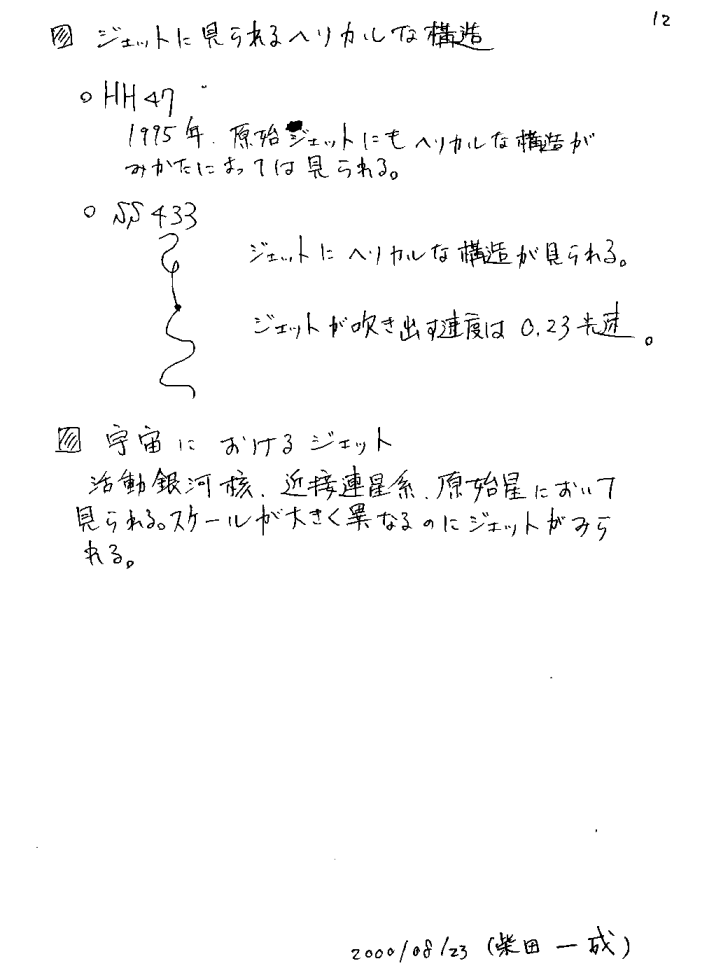 12
図 ジェットに見られるヘリカルな構造
○ HH47
1995年、原始ジェットにもヘリカルな構造が
みかたによっては見られる。
○ SS433
ジェットにヘリカルな構造が見られる。
ジェットが吹き出す速度は 0.23光速。
図 宇宙におけるジェット
活動銀河核、近接連星系、原始星において
見られる。スケールが大きく異なるのにジェットがみら
れる。
2000/08/23 (柴田 一成)